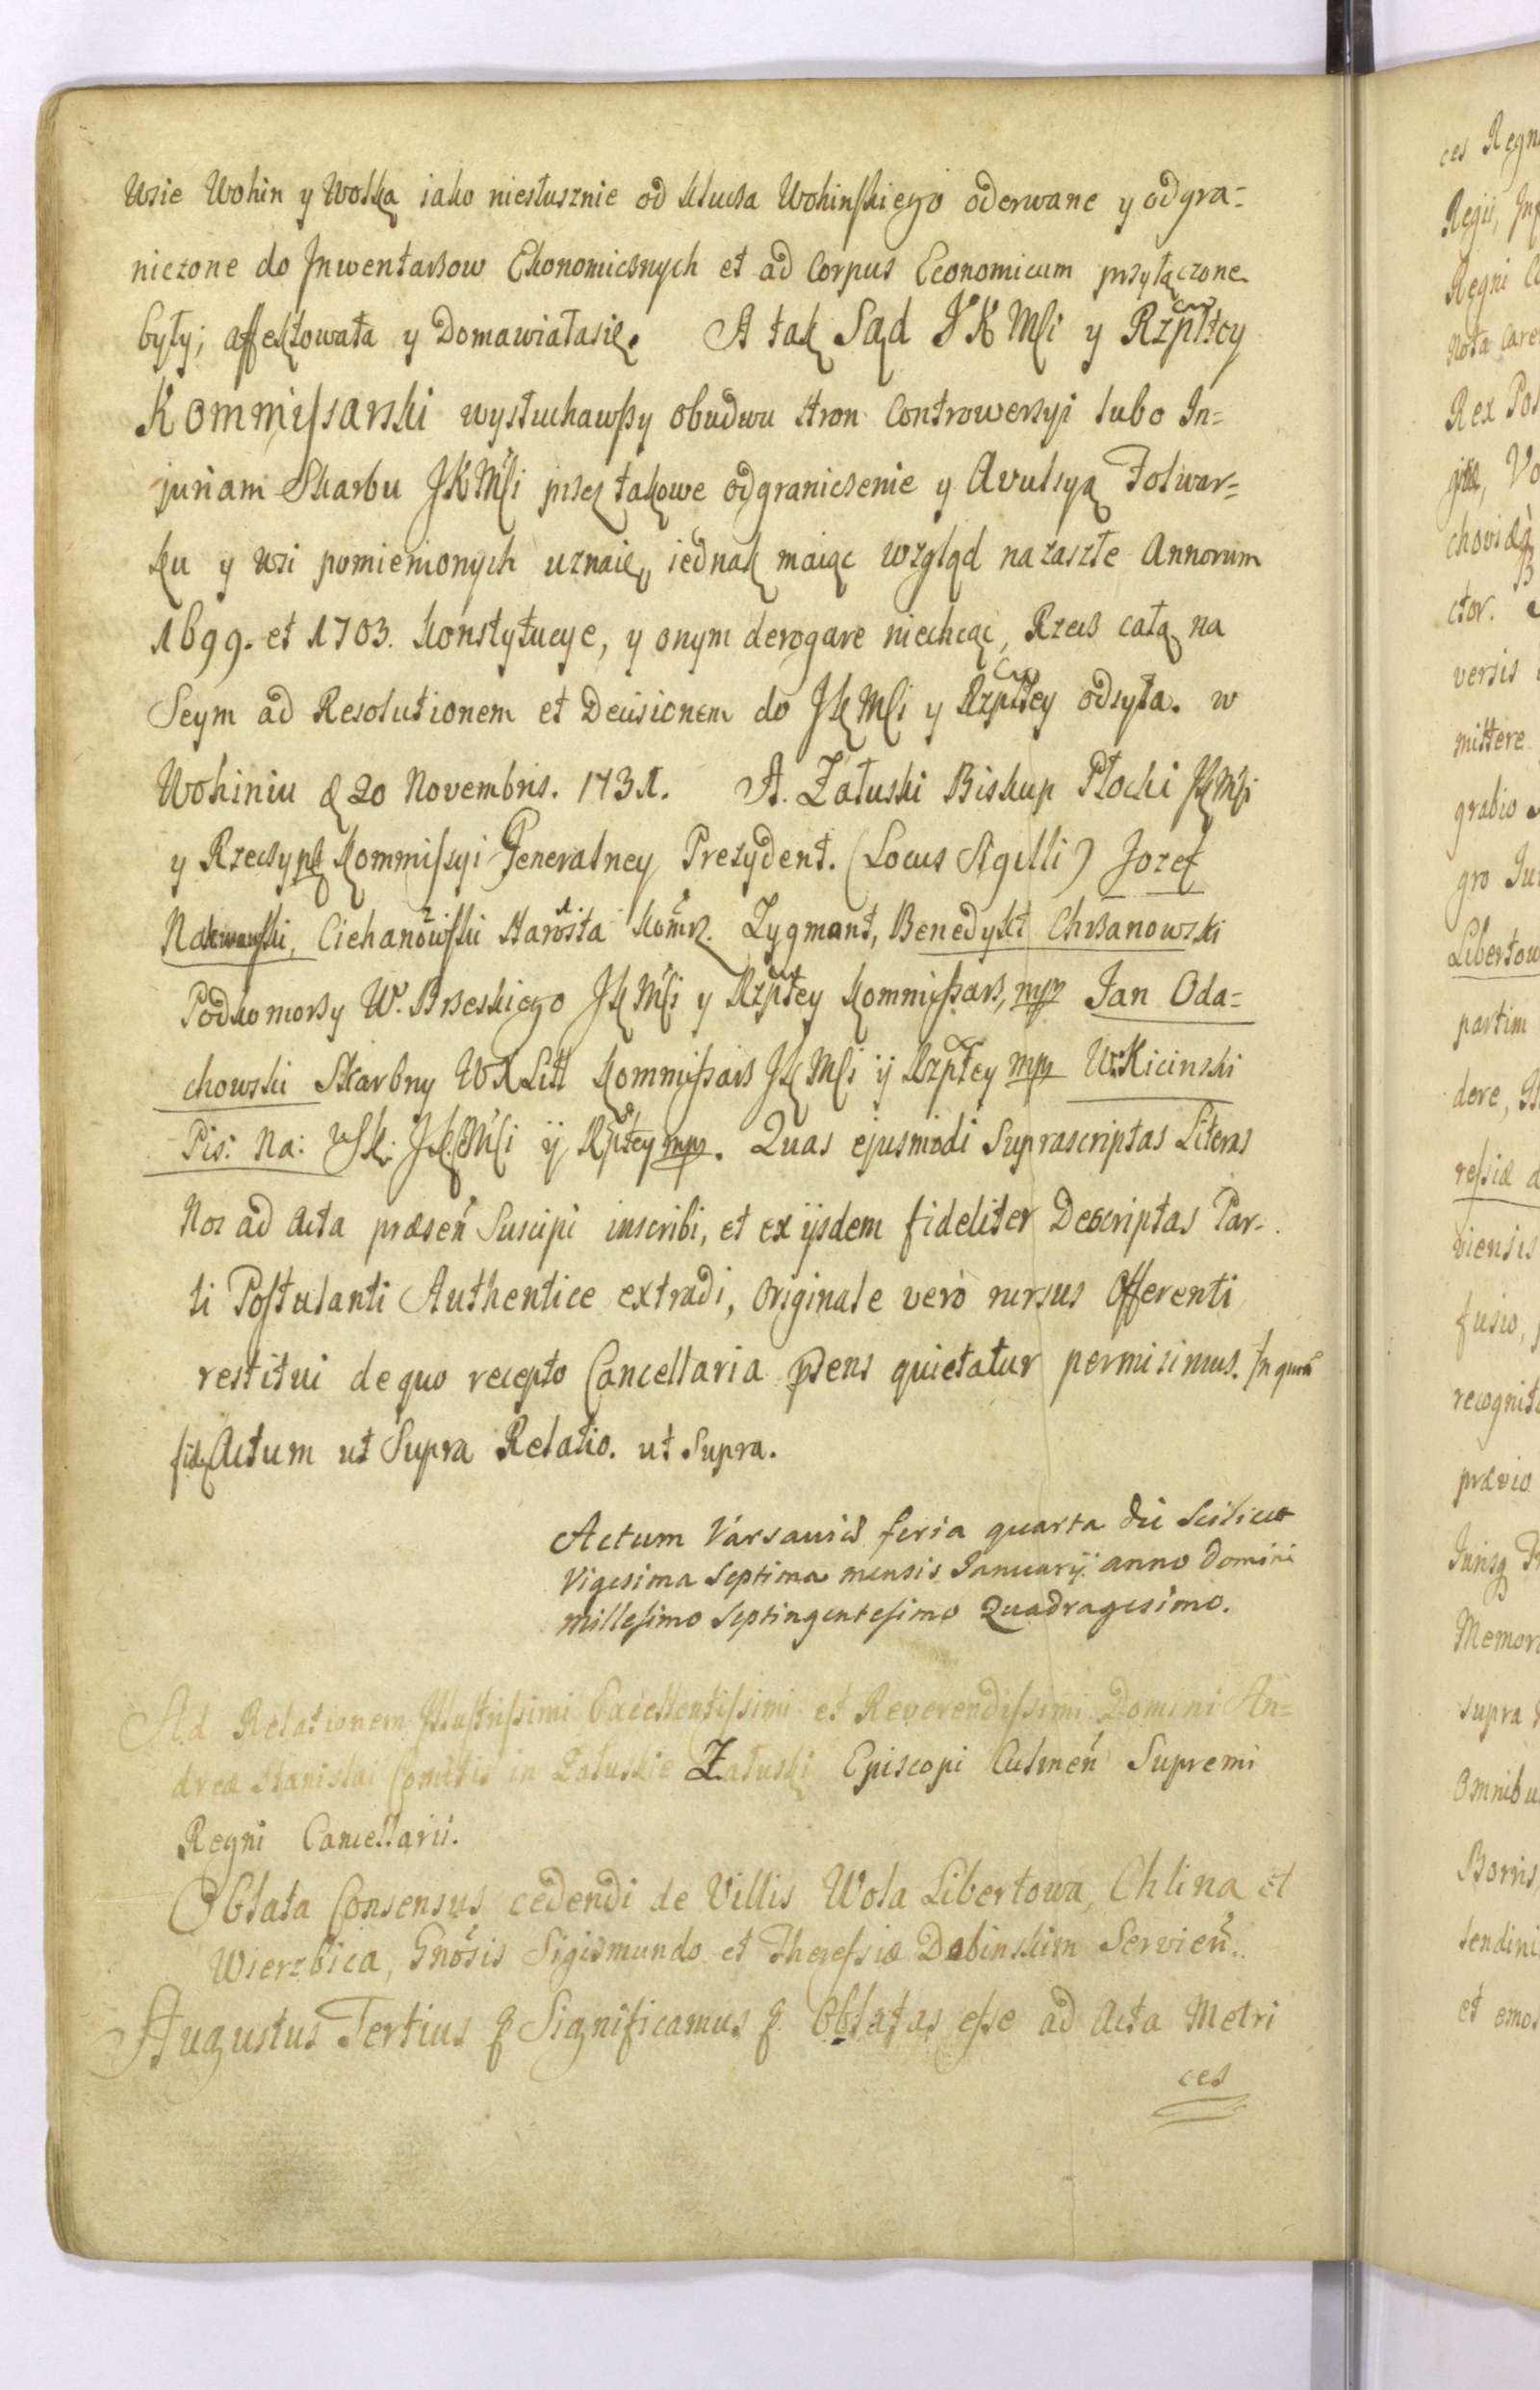 Wsie Wohin y Wolka iako niesłusznie od klucza Wohinskiego oderwane y odgra=
niczone do Jnwentarzow Ekonomicznych et ad Corpus Economicum przyłączone
były; affektowała y Domawiałasię. A tak Sąd JK Mci y Rzpltey
Kommissarski wysłuchawszy obudwu stron Controwersyi lubo In=
juriam Skarbu JKMci przez takowe odgraniczenie y Avulsyą Folwar=
ku y wsi pomienionych uznaie, iednak maiąc wzgląd na zaszłe Annorum
1699. et 1703. Konstytucye, y onym derogare niechcąc, Rzecz całą na
Seym ad Resolutionem et Decisionem do JK Mci y Rzpltey odsyła. w
Wohiniu d 20 Novembris. 1731. A. Załuski Biskup Płocki JKMci
y Rzeczyplt Kommissyi Generalney Prezydent. (Locus Sigilli) Jozef
Nakwaski, Ciehanowski Starosta Komrz. Zygmant, Benedykt Chrzanowski
Podkomorzy W. Brzeskiego JK Mci y Rzpltey Kommissarz, mpp Jan Oda=
chowski Skarbny WXLitt Kommissarz JK Mci ÿ Rzpltey mpp W. Kicinski
Pis: Na: Sk: JKMci ÿ Rzpltey mpp. Quas ejusmodi Suprascriptas Literas
Nos ad Acta præseñ Suscipi inscribi, et ex ijsdem fideliter Descriptas Par-
ti Postulanti Authentice extradi, Originale verò rursus Offerenti
restitui de quo recepto Cancellaria pñens quietatur permisimus. In quorũ
fid Actum ut Supra Relatio. ut Supra.
Actum Varsaviæ feria quarta die Scilicet
Vigesima Septima mensis Januarij anno Domini
Millesimo Septingentesimo Quadragesimo.
Ad Relationem Illustrissimi Excellentissimi et Reverendissimi Domini An=
dreæ Stanislai Comitis in Załuskie Załuski Episcopi Culmeñ Supremi
Regni Cancellarii.
Oblata Consensus cedendi de Villis Wola Libertowa, Chlina et
Wierzbica, Gnosis Sigismundo et Theressiæ Dabinskim Servieñ.
Augustus Tertius & Significamus & Oblatas esse ad Acta Metri
ces